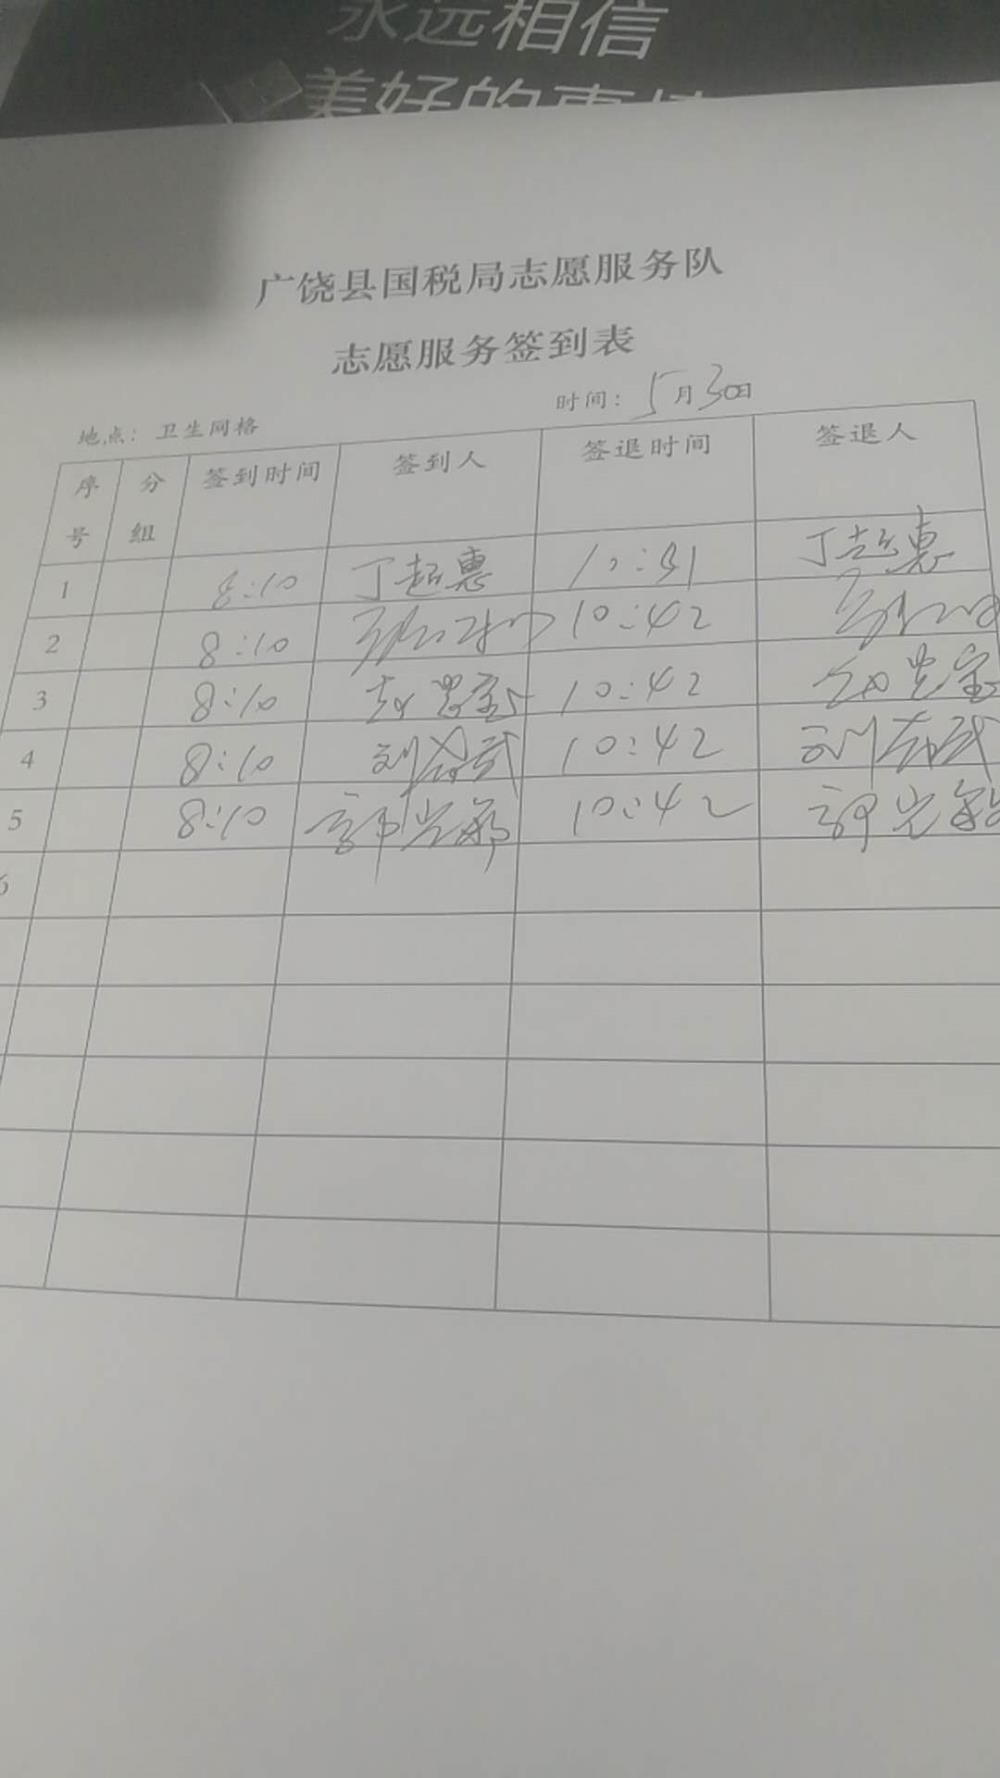 永远相信
美好的事情
广饶县国税局志愿服务队
志愿服务签到表
地点：卫生网格 时间：5月30日
序号 分组 签到时间 签到人 签退时间 签退人
1 8:10 丁超惠 10:31 丁超惠
2 8:10 10:42
3 8:10 10:42
4 8:10 刘 武 10:42 刘 武
5 8:10 郭光 10:42 郭光
6